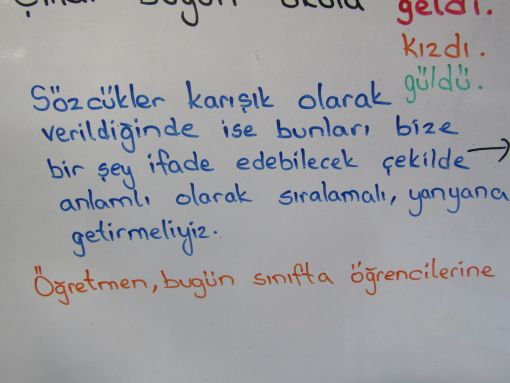 bugün okula geldi.
kızdı.
güldü.
Sözcükler karışık olarak
verildiğinde ise bunları bize
bir şey ifade edebilecek çekilde →
anlamlı olarak sıralamalı, yanyana
getirmeliyiz.
Öğretmen, bugün sınıfta öğrencilerine